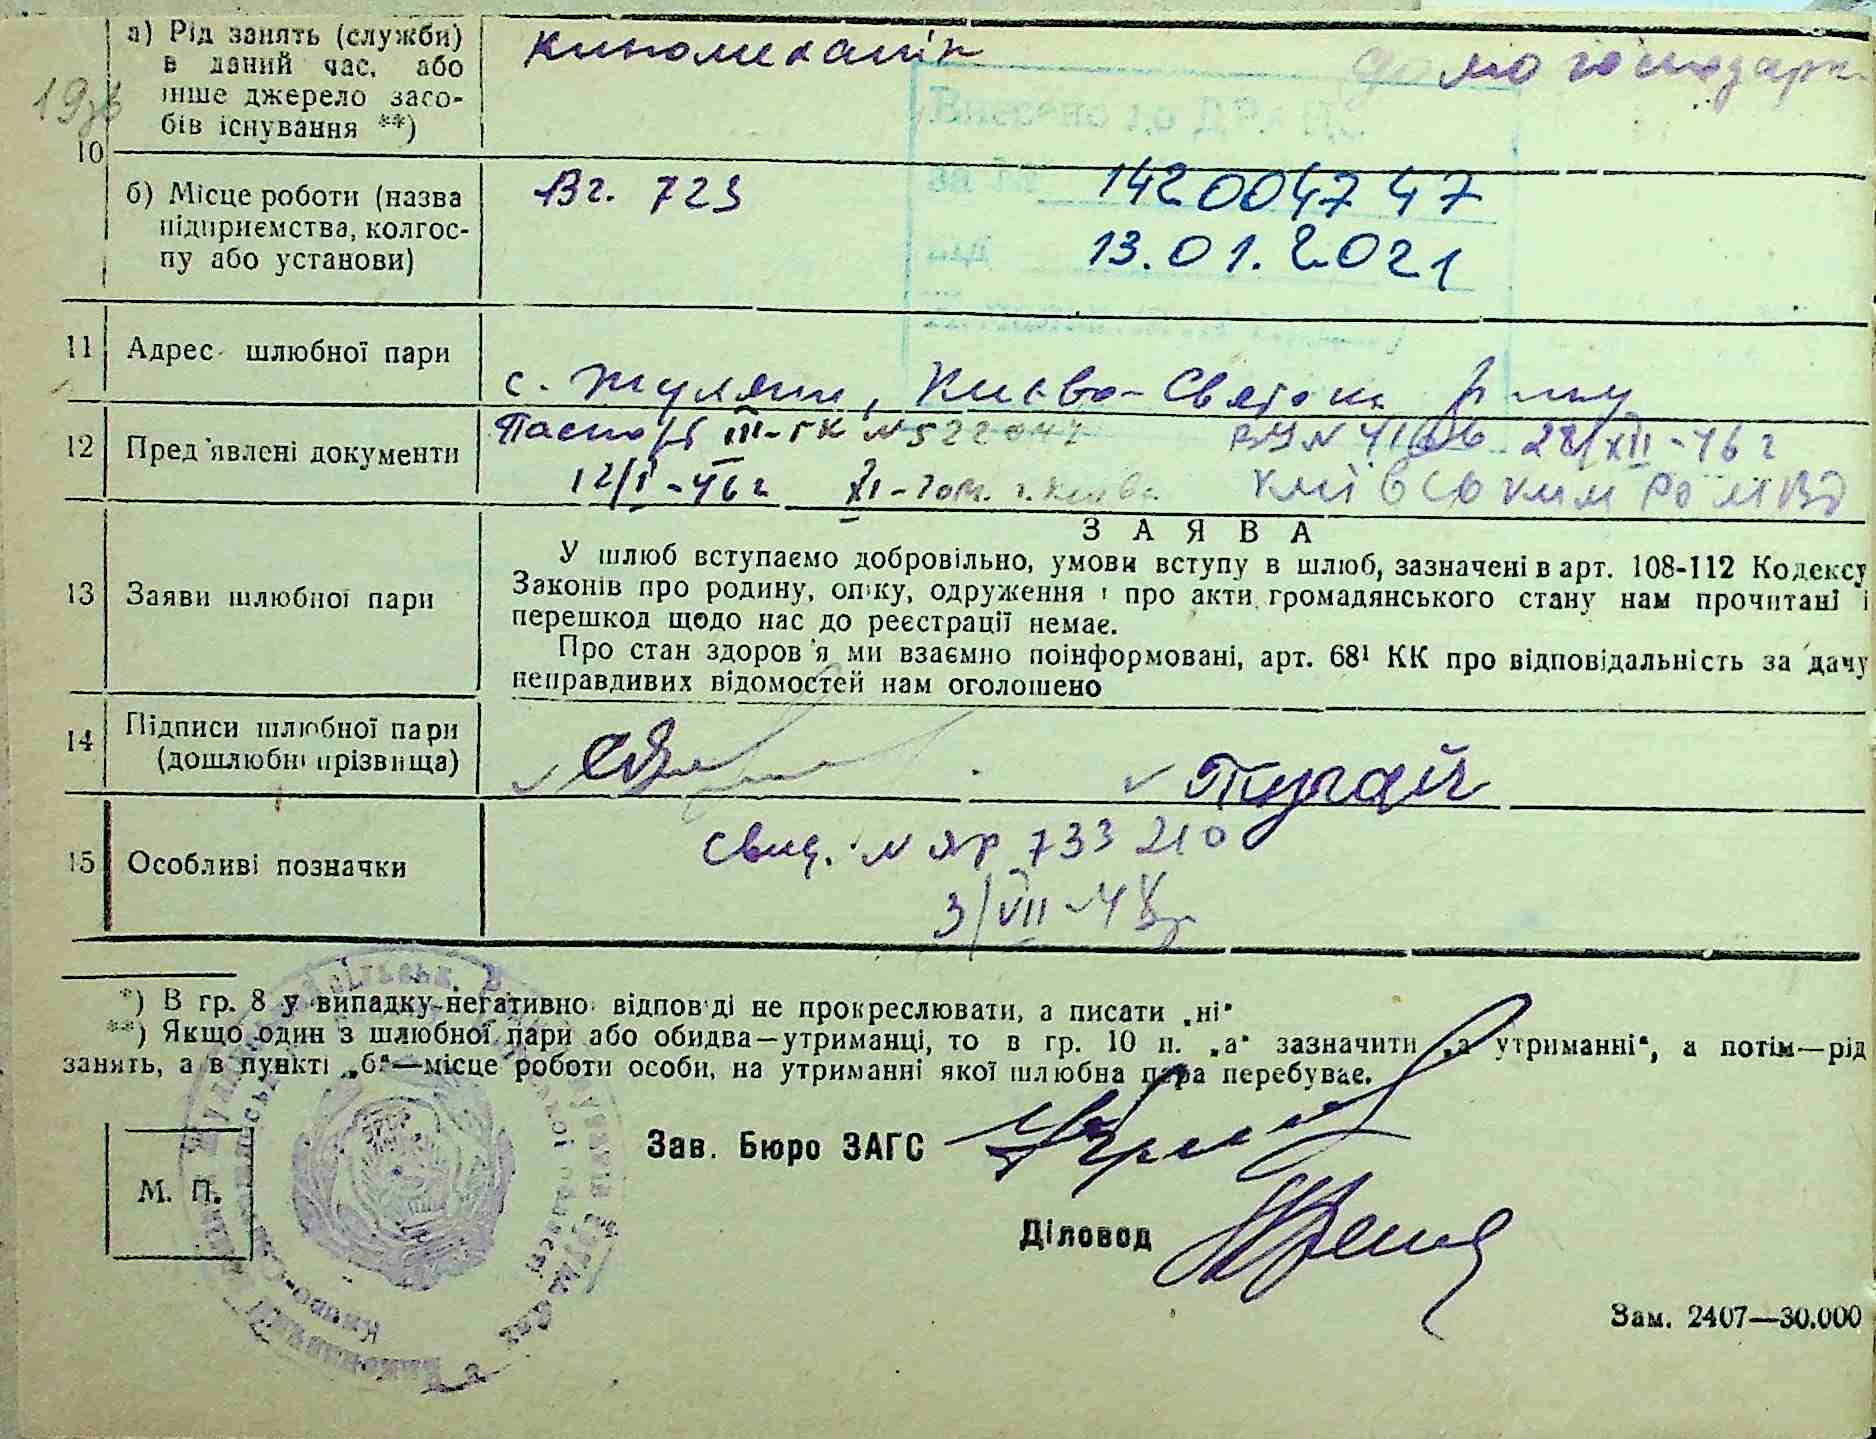 а) Рід занять (служби)
в даний час, або
інше джерело засо-
бів існування **)
киномеханік
домогосподарк
10
Внесено до ДРАЦС
за №
142004747
від
13.01.2021
б) Місце роботи (назва
підприємства, колгос-
пу або установи)
Вг. 723
11
Адрес шлюбної пари
с. Жуляни, Києво-Святош
12
Пред'явлені документи
Паспорт III-ГК №522047
12/II-46г XI-
№ 4166 28/XII-46г
Київським РОМВД
13
Заяви шлюбної пари
ЗАЯВА
У шлюб вступаємо добровільно, умови вступу в шлюб, зазначені в арт. 108-112 Кодексу
Законів про родину, опіку, одруження і про акти громадянського стану нам прочитані і
перешкод щодо нас до реєстрації немає.
Про стан здоров'я ми взаємно поінформовані, арт. 68¹ КК про відповідальність за дачу
неправдивих відомостей нам оголошено
14
Підписи шлюбної пари
(дошлюбні прізвища)
Тугай
15
Особливі позначки
Свид. № ЯР 733210
3/VII-48г
*) В гр. 8 у випадку негативно відповіді не прокреслювати, а писати „ні"
**) Якщо один з шлюбної пари або обидва—утриманці, то в гр. 10 п. „а" зазначити „а утриманні", а потім—рід
занять, а в пункті „б"—місце роботи особи, на утриманні якої шлюбна пара перебуває.
М. П.
Зав. Бюро ЗАГС
Діловод
Зам. 2407—30.000